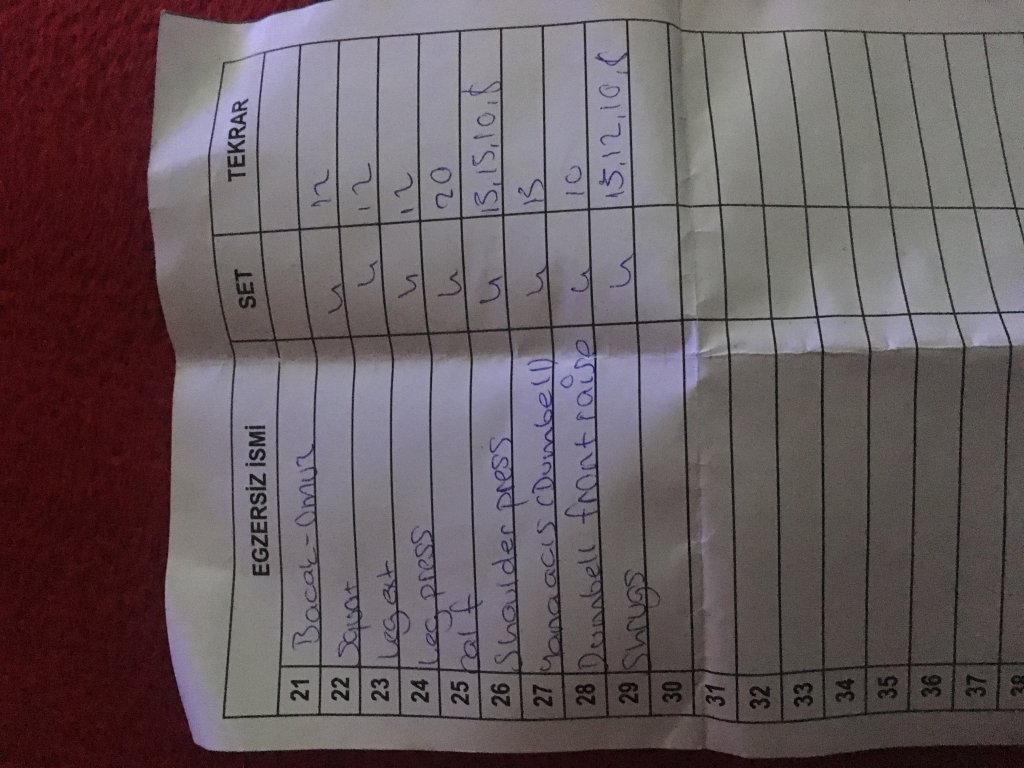 EGZERSİZ İSMİ SET TEKRAR
21 Bacak-Omuz
22 Squat 4 12
23 Legext 4 12
24 Leg press 4 12
25 calf 4 20
26 Shoulder press 4 15,15,10,8
27 Yanaacıs (Dumbell) 4 15
28 Dumbell front raise 4 10
29 Shrugs 4 15,12,10,8
30
31
32
33
34
35
36
37
38